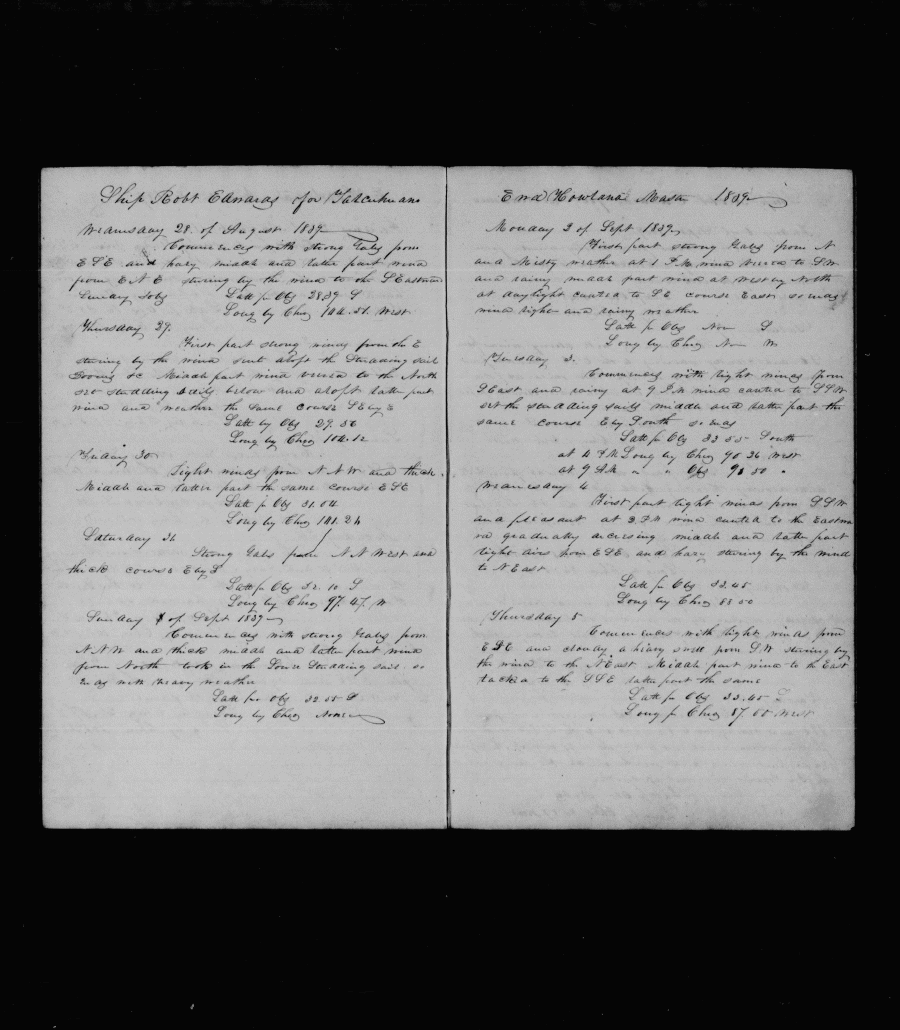 Ship Robt Edwards for Talcuhuano
Wednesday 28. of August 1839
Commences with strong Gales from
E S E and hazy middle and latter part wind
from E N E stering by the wind to the S Eastward
Sunday Jobs Latt pr Obs 28.39 S
Long by Chro 104.51. West
Thursday 29.
First part strong winds from the E
stering by the wind sent aloft the Studding sail
Booms &c Middle part wind veered to the North
set studding sails below and aloft latter part
wind and weather the same course S E by E
Latt by Obs 29.56
Long by Chro 102.12
Friday 30
Light winds from N N W and thick.
Middle and latter part the same course E S E
Latt pr Obs 31.04
Long by Chro 101.24
Saturday 31
Strong Gales from N N West and
thick course E by S
Latt pr Obs 32.10 S
Long by Chro 97.47. W
Sunday 1 of Sept 1839
Commences with strong Gales from
N N W and thick middle and latter part wind
from North took in the Lower Studding sail. so
ends with heavy weather
Latt pr Obs 32.55 S
Long by Chro None
Ewd Howland Master 1839
Monday 2 of Sept 1839
First part strong Gales from N
and Misty weather at 1 P.M wind veered to S W
and rainy middle part wind at West by North
at daylight canted to S E course East so ends
wind light and rainy weather
Latt pr Obs Non S
Long by Chro Non W
Tuesday 3.
Commences with light winds from
S East and rainy at 9 P.M wind canted to S S W
set the studding sails middle and latter part the
same course E by South so ends
Latt pr Obs 33 55 South
at 4 P.M Long by Chro 90 36 West
at 9 A.M " " Obs 91 50 "
Wednesday 4
First part light winds from S S W
and pleasant at 3 P.M wind canted to the Eastwa
rd gradually decresing middle and latter part
light airs from E S E and hazy stering by the wind
to N East
Latt pr Obs 33.45
Long by Chro 88 50
Thursday 5
Commences with light winds from
E S E and cloudy a heavy swell from S W stering by
the wind to the N East Middle part wind to the East
tack d to the S S E latter part the same
Latt pr Obs 33.45 S
Long pr Chro 87.00 West